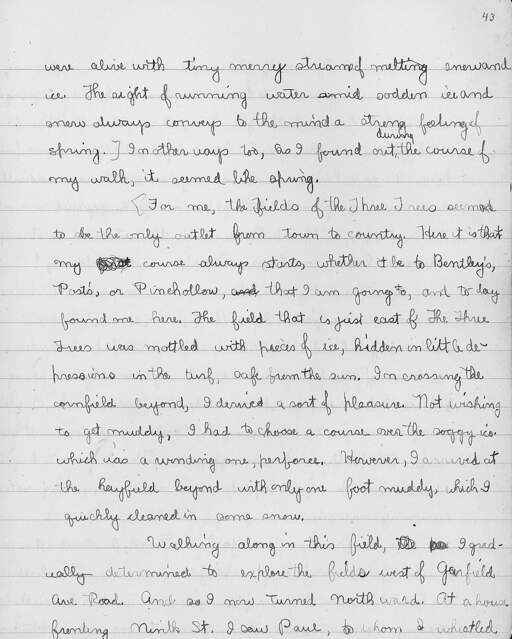 43
were alive with tiny merry streams of melting snow and
ice. The sight of running water amid sodden ice and
snow always conveys to the mind a strong feeling of
during
spring.] In other ways too, as I found out, the course of
my walk, it seemed like spring.
[For me, the fields of the Three Trees seemed
to be the only outlet from town to country. Here it is that
my course always starts, whether it be to Bentley's,
Post's, or Pinchollow, and that I am going to, and to day
found me here. The field that is just east of The Three
Trees was mottled with pieces of ice, hidden in little de-
pressions in the turf, safe from the sun. In crossing the
cornfield beyond, I derived a sort of pleasure. Not wishing
to get muddy, I had to choose a course over the soggy ice
which was a winding one, perforce. However, I arrived at
the hayfield beyond with only one foot muddy, which I
quickly cleaned in some snow.
Walking along in this field, I grad-
ually determined to explore the fields west of Garfield
Ave Road. And so I now turned northward. At a house
fronting Ninth St. I saw Paul, to whom I whistled